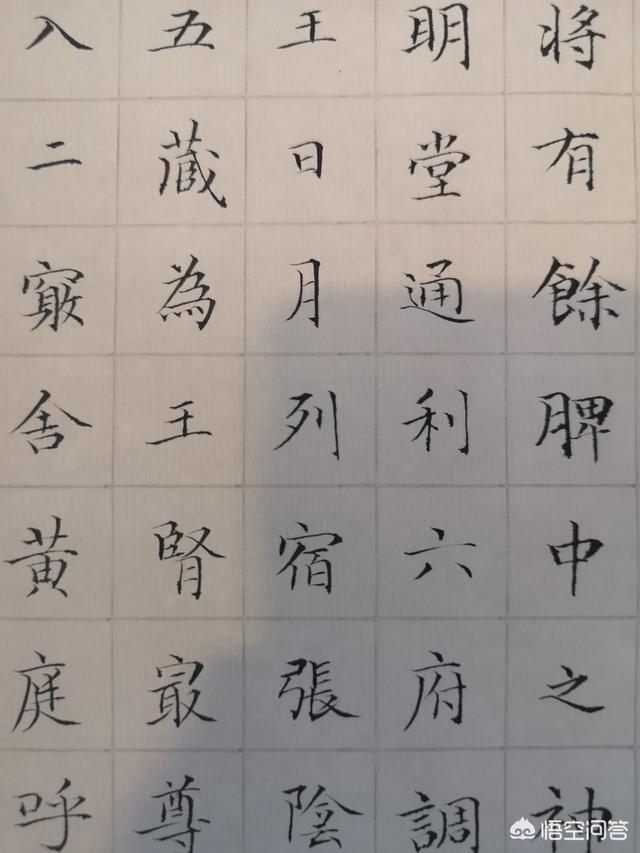 将有餘脾中之神
明堂通利六府調
王日月列宿張陰
五藏為王腎㝡尊
入二竅舍黃庭呼
悟空问答